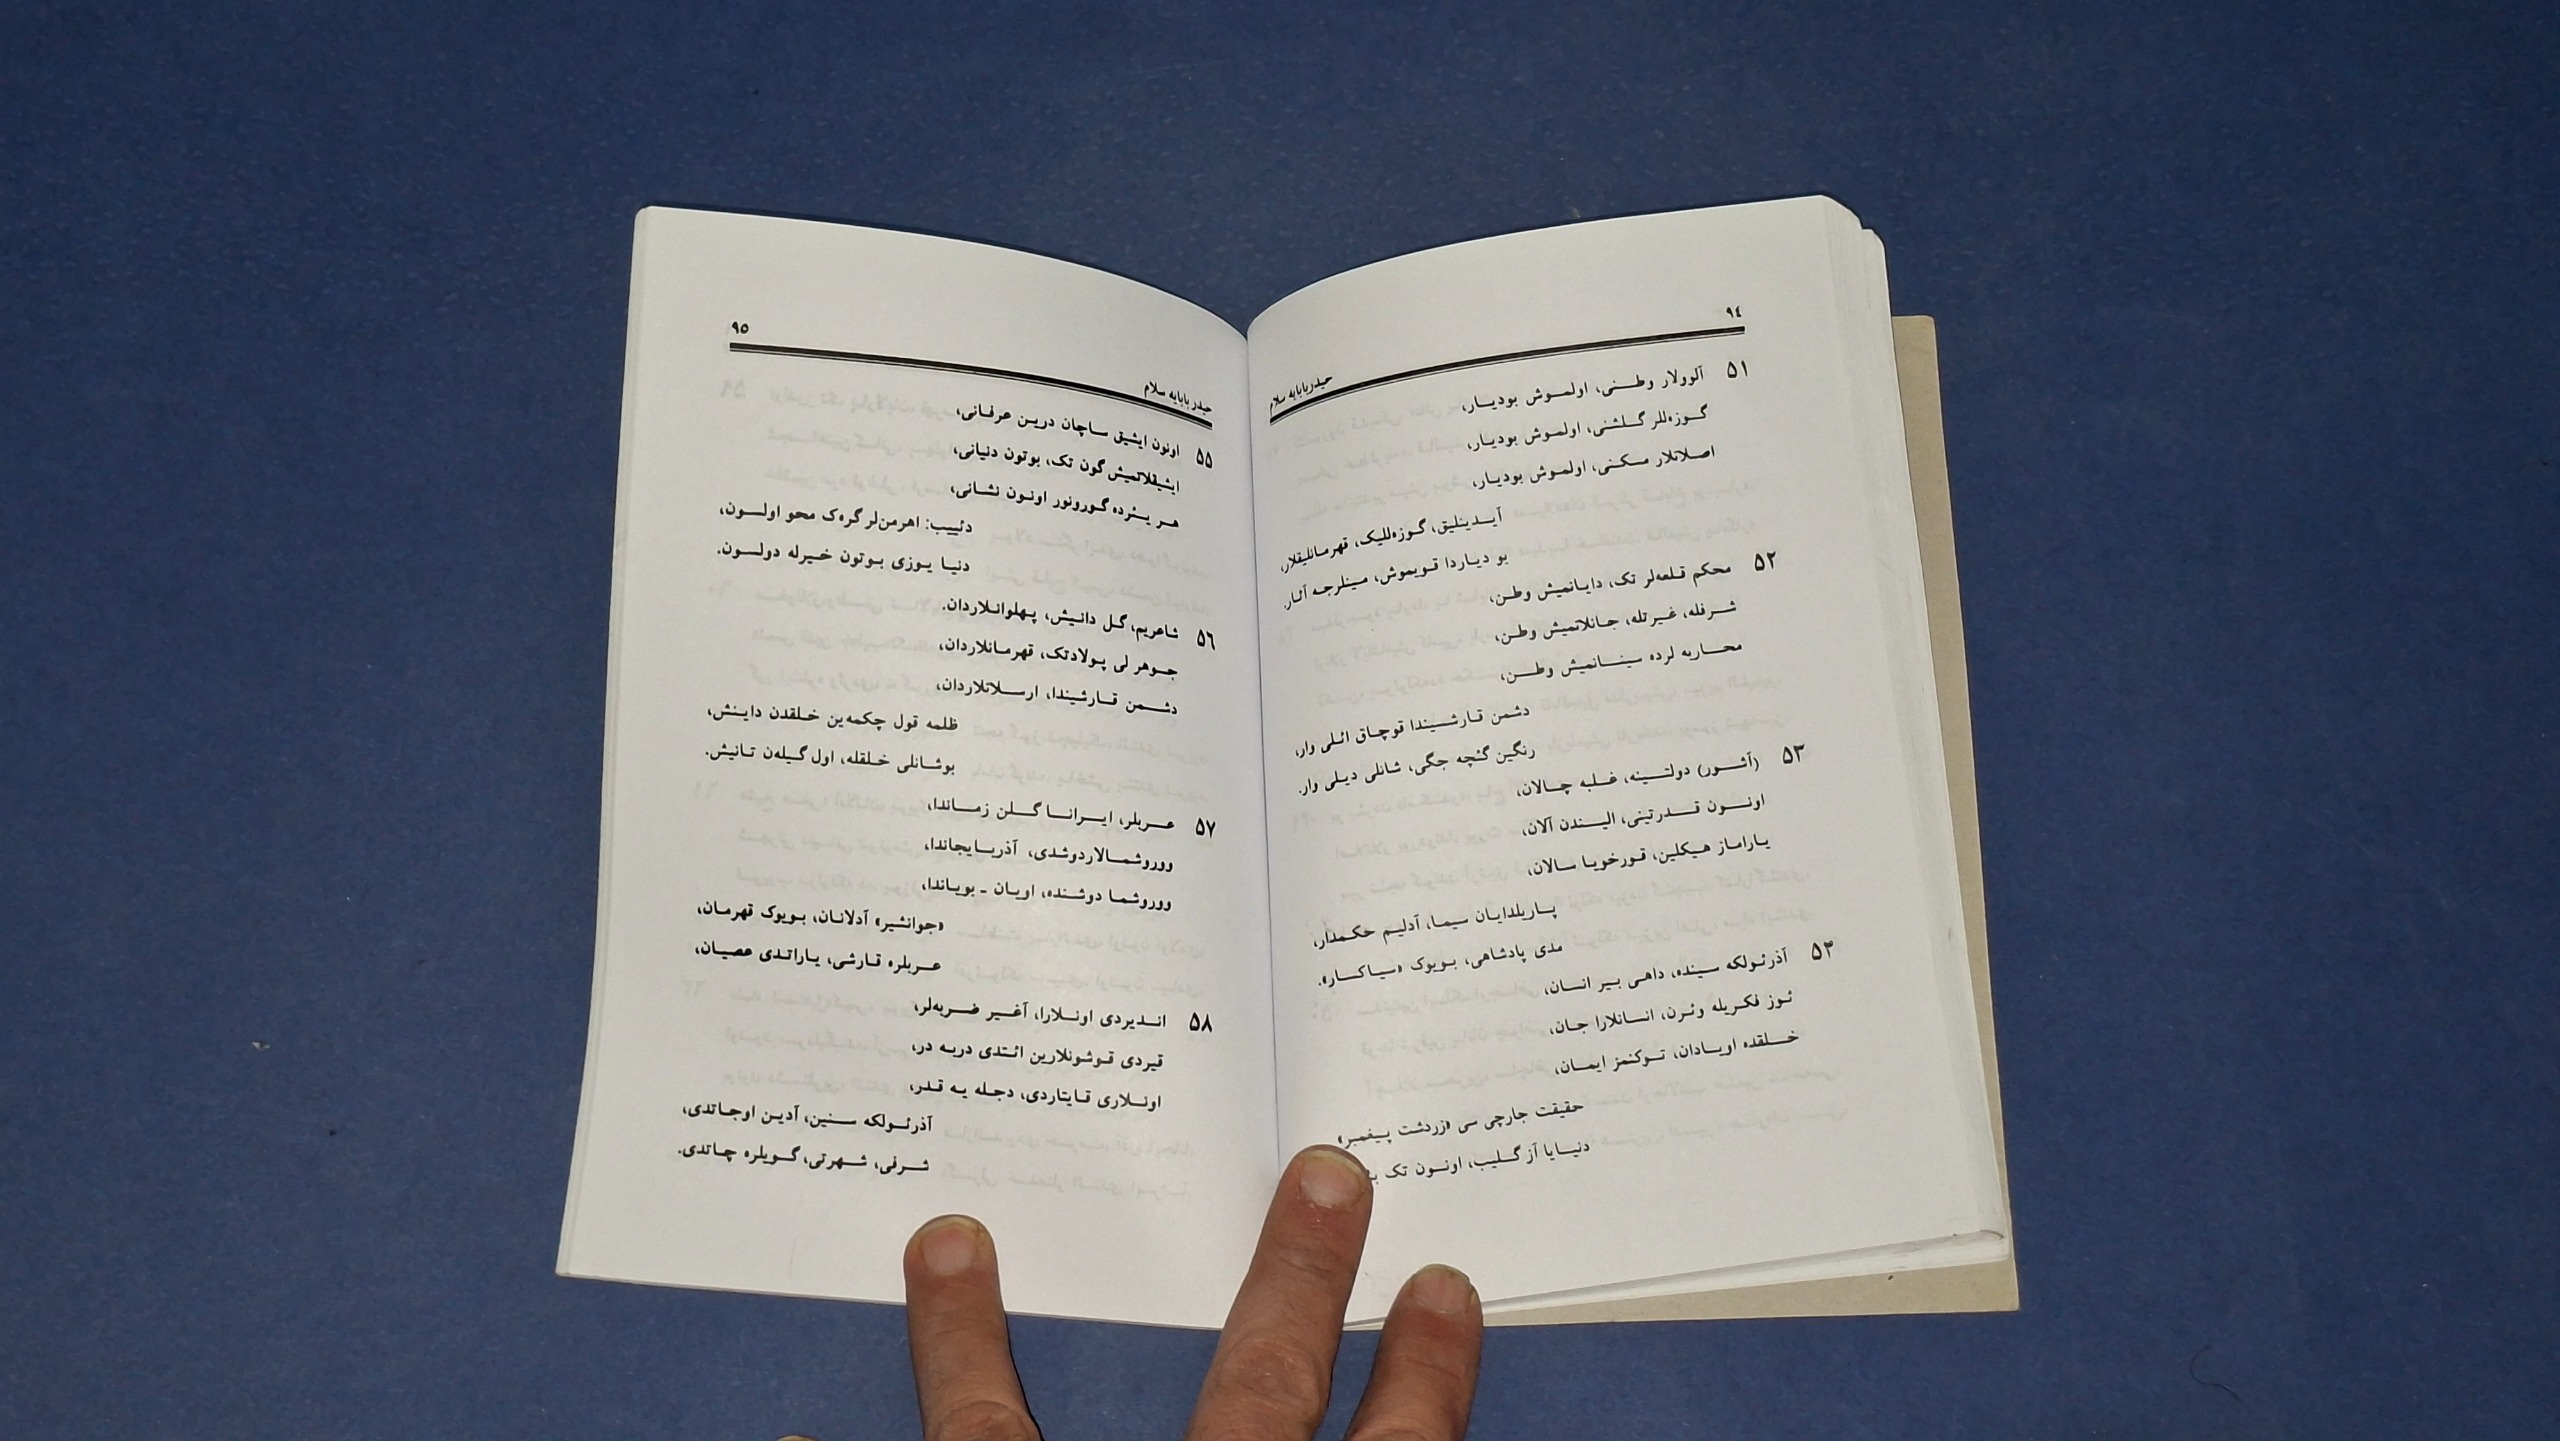 ۹٤
حیدربابایه سلام
۵۱ آلوولار وطـنی، اولمـوش بودیـار،
گـوزه‌للر گـلشنی، اولمـوش بودیـار،
اصـلانلار مـکنی، اولمـوش بودیـار،
آیـدینلیق، گـوزه‌للیک، قهرمـانلیقلار،
بو دیـاردا قـویموش، مـینلرجـه آثـار.
۵۲ محکم قـلعه‌لر تک، دایـانمیش وطـن،
شـرفله، غیـرتله، جـانلاتمیش وطـن،
محـاربه لرده سینـانمیش وطـن،
دشمن قـارشـیندا قوچـاق ائـلی وار،
رنگین گئچه جگی، شانلی دیـلی وار.
۵۳ (آشـور) دولتـینه، غـلبه چـالان،
اونـون قـدرتینی، الیـندن آلان،
یـاراماز هیـکلین، قـورخویـا سالان،
پـاریلدایـان سیمـا، آدلیـم حکـمدار،
مدی پادشاهی، بـویوک «سیـاکسـار».
۵۳ آذرئـولکه سـینده، داهـی بیـر انسـان،
ئـوز فکـریله وئرن، انسانلارا جان،
خـلقده اویـادان، تـوکنمز ایمـان،
حقیقت جارچی سی «زردشت پیـغمبر»
دنیـایا آز گـلیب، اونـون تک
۹۵
حیدربابایه سلام
۵۵ اونون ایشیق سـاچان دریـن عرفـانی،
ایشیقلاتمیش گون تک، بوتون دنیانی،
هـر یـئرده گـورونور اونـون نشـانی،
دئـییب: اهرمن‌لر گره‌ک محو اولسـون،
دنیـا یـوزی بـوتون خـیرله دولـسون.
۵٦ شاعریم، گـل دانـیش، پـهلوانـلاردان.
جـوهر لی پـولادتک، قهرمـانلاردان،
دشـمن قـارشیندا، ارسـلانلاردان،
ظلمه قول چکمه‌ین خـلقدن داینـش،
بوشانلی خـلقله، اول گیـله‌ن تـانیش.
۵۷ عـربلر، ایـرانـا گـلن زمـاندا،
ووروشمـالاردوشدی، آذربـایجاندا،
ووروشما دوشنده، اویـان ـ بویـاندا،
«جوانشیر» آدلانـان، بـویوک قهرمـان،
عـربلره قـارشی، یـاراتدی عصیـان،
۵۸ انـدیردی اونـلارا، آغـیر ضـربه‌لر،
قیردی قـوشونلارین ائـتدی دربـه در،
اونـلاری قـایتاردی، دجـله یـه قـدر،
آذرئـولکه سـنین، آدیـن اوجـاتدی،
شـرفی، شـهرتی، گـویلره چـاتدی.